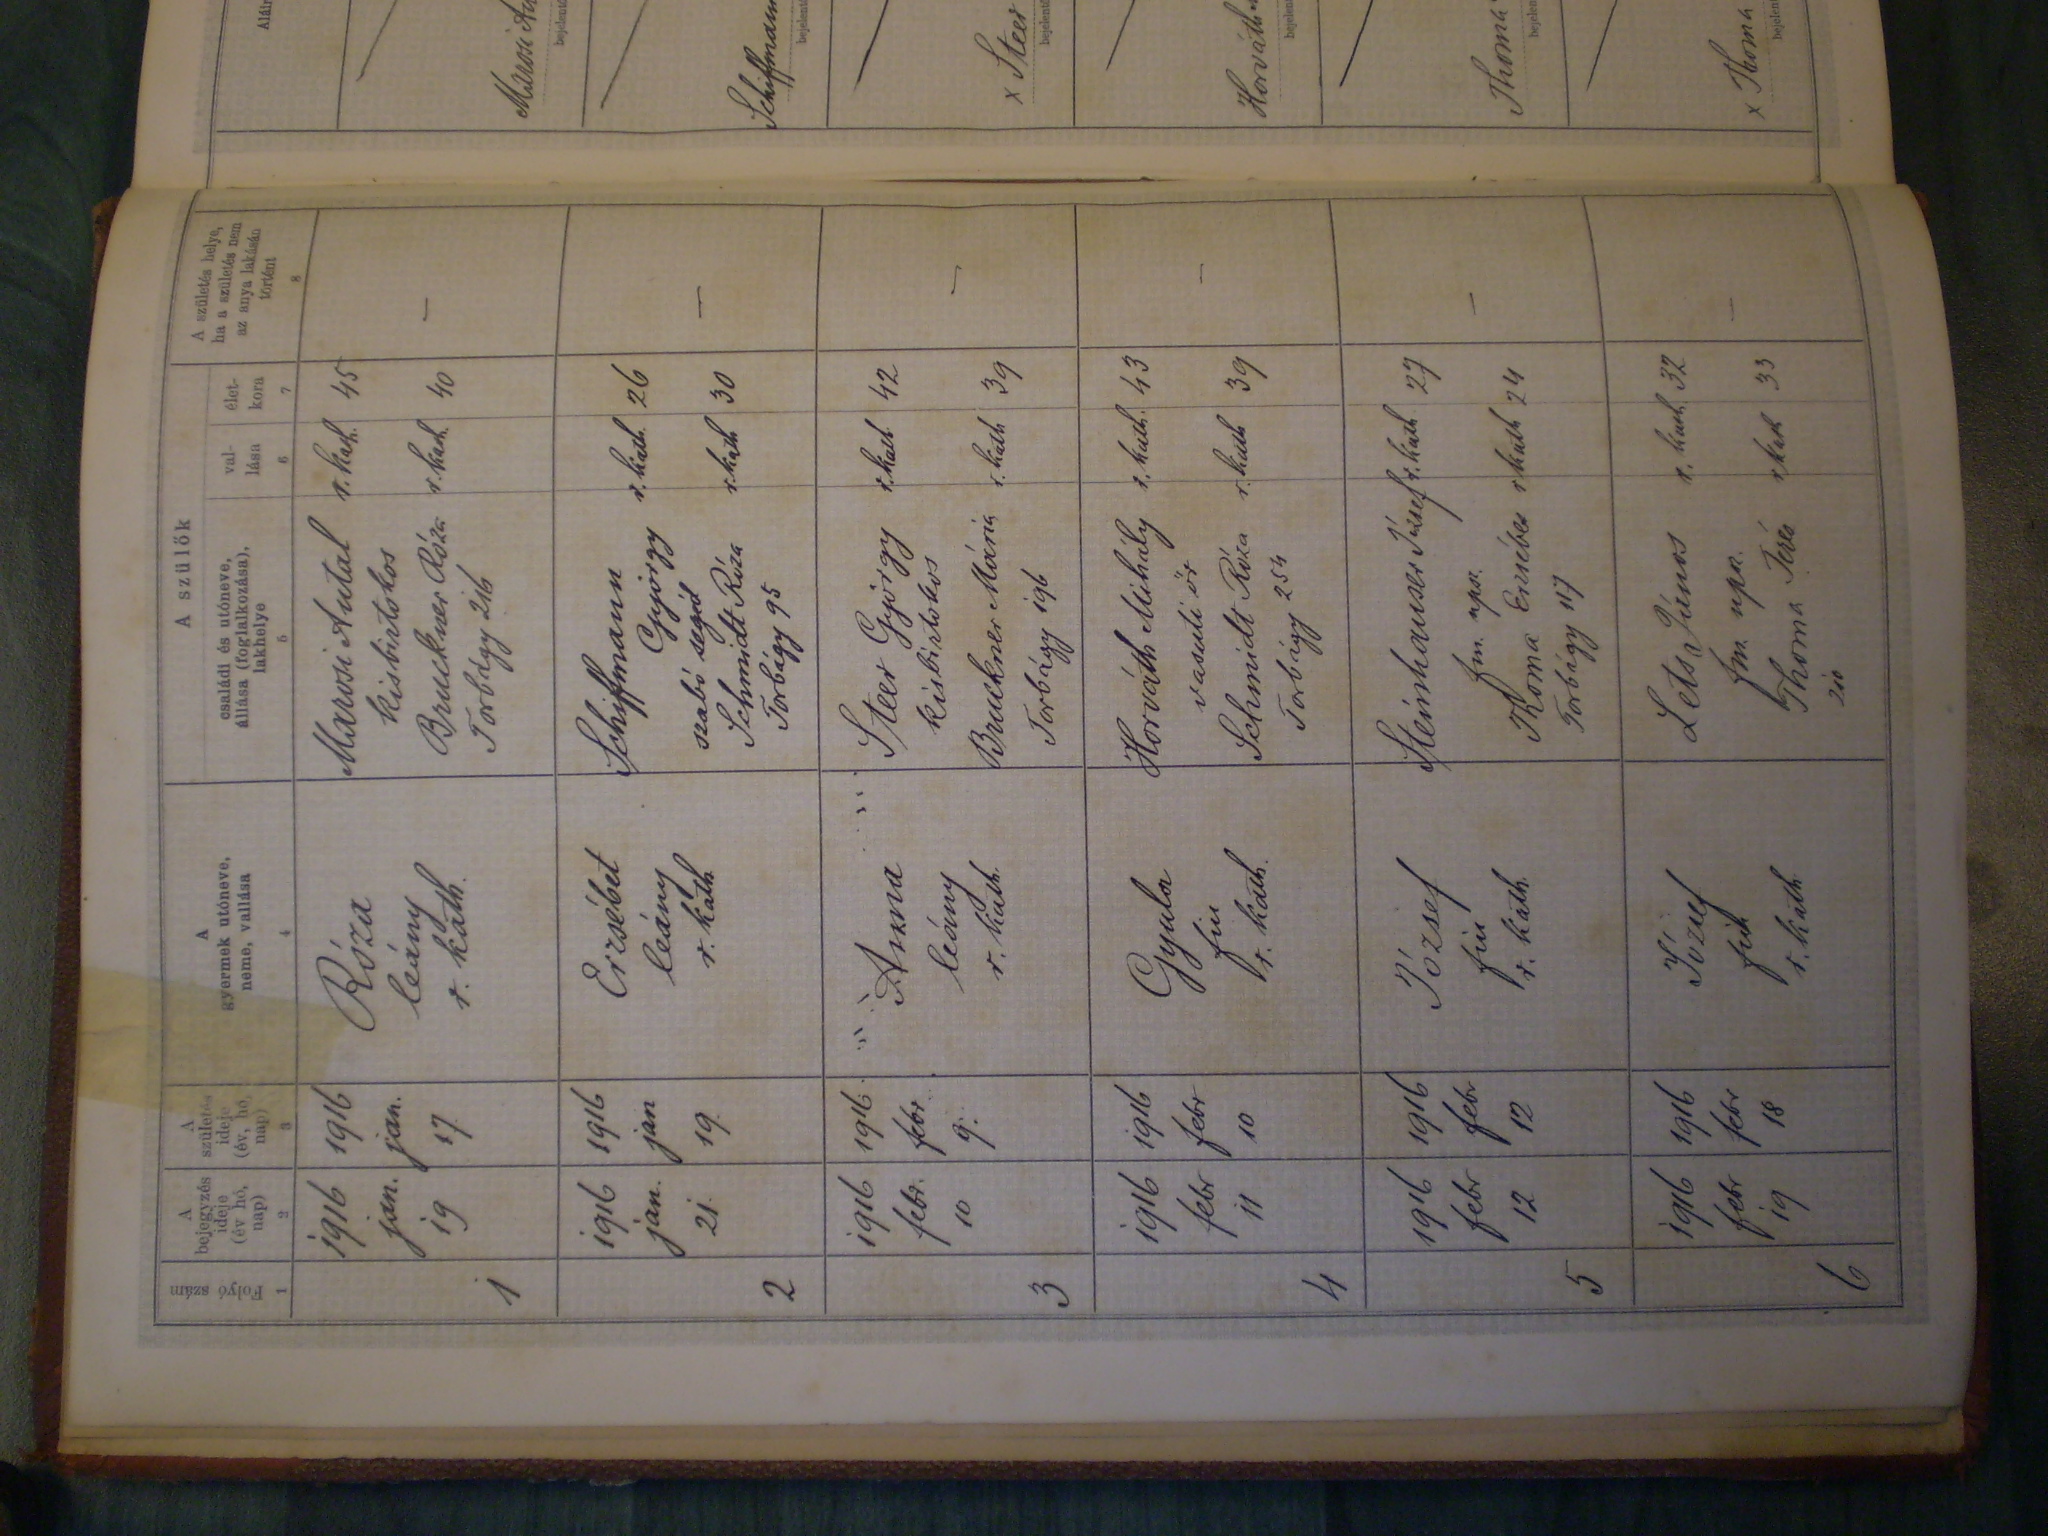 Folyó szám
1
A
bejegyzés
ideje
(év hó,
nap)
2
A
születés
ideje
(év, hó,
nap)
3
A
gyermek utóneve,
neme, vallása
4
A szülők
családi és utóneve,
állása (foglalkozása),
lakhelye
5
val-
lása
6
élet-
kora
7
A születés helye,
ha a születés nem
az anya lakásán
történt
8
1
1916
jan.
19
1916
jan.
17
Róza
leány
r. kath.
Marosi Antal
kisbirtokos
Bruckner Róza
Torbágy 216
r. kath.
r. kath.
45
40
—
Marosi
2
1916
jan.
21.
1916
jan
19
Erzsébet
leány
r. kath.
Schiffmann
György
szabó segéd
Schmidt Róza
Torbágy 95
r. kath.
r. kath
26
30
—
Schiffmann
3
1916
febr.
10
1916
febr.
9.
Anna
leány
r. kath.
Steer György
kisbirtokos
Bruckner Mária
Torbágy 196
r. kath
r. kath
42
39
—
x Steer
4
1916
febr
11
1916
febr
10
Gyula
fiu
r. kath.
Horváth Mihály
vasuti őr
Schmidt Róza
Torbágy 254
r. kath.
r. kath
43
39
—
Horváth
5
1916
febr
12
1916
febr
12
József
fiu
r. kath.
Steinhauser József
fm. nps.
Thoma Erzsébet
Torbágy 117
r. kath
r kath
27
24
—
Thoma
6
1916
febr
19
1916
febr
18
József
fiu
r. kath.
Lets János
fm. nps.
Thoma Teréz
210
r. kath.
r kath
32
33
—
x Thoma